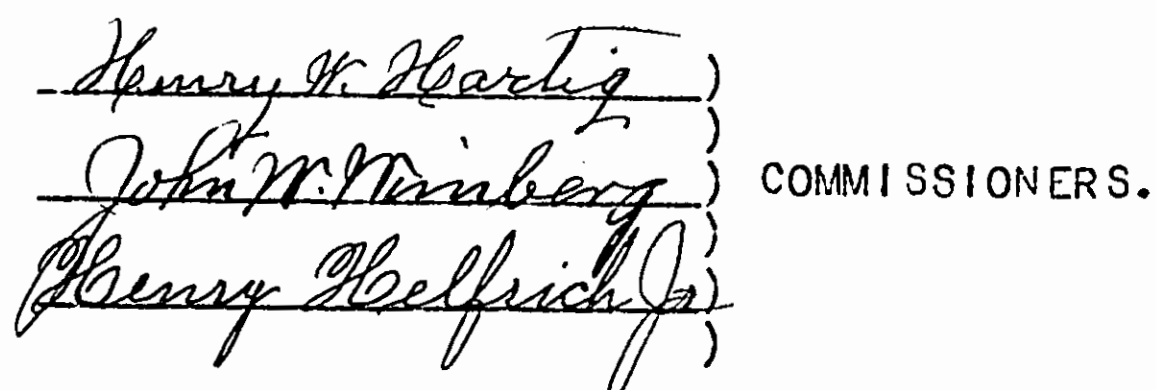 Henry W. Hartig )
)
John W. Wimberg ) COMMISSIONERS.
)
Henry Helfrich Jr )
)